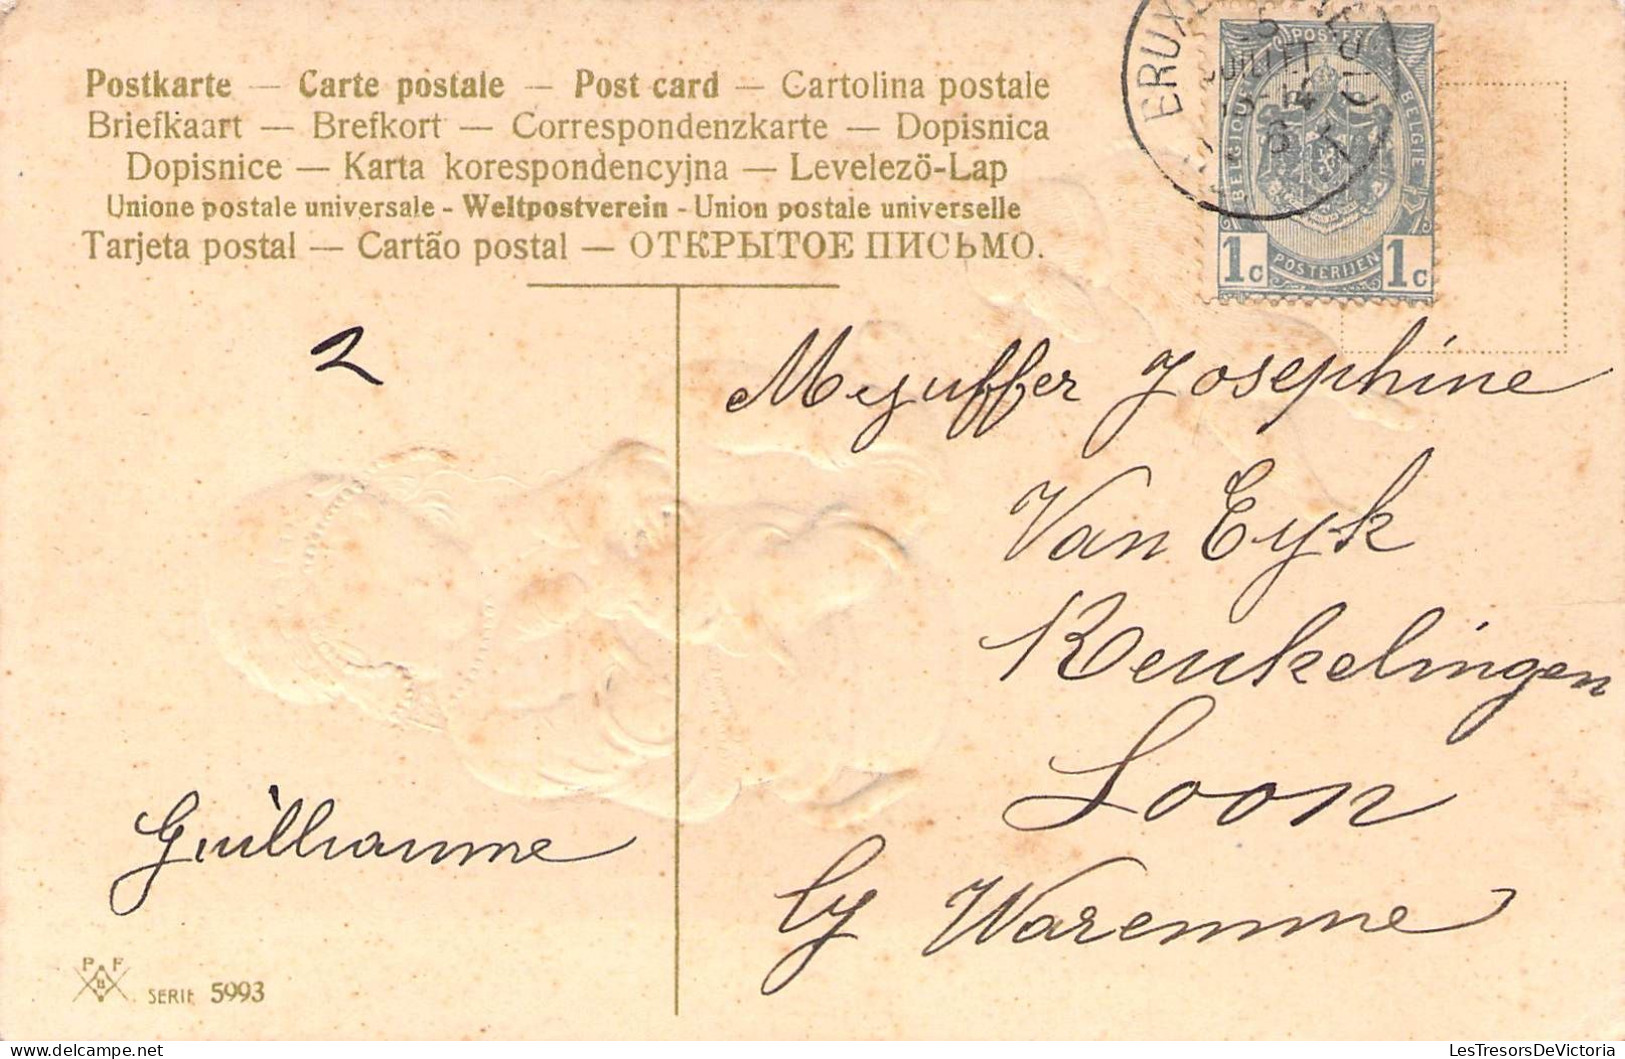 Postkarte — Carte postale — Post card — Cartolina postale
Briefkaart — Brefkort — Correspondenzkarte — Dopisnica
Dopisnice — Karta korespondencyjna — Levelezö-Lap
Unione postale universale - Weltpostverein - Union postale universelle
Tarjeta postal — Cartão postal — ОТКРЫТОЕ ПИСЬМО.
POSTES
BELGIQUE
BELGIE
1c POSTERIJEN 1c
2
Mejuffer Josephine
Van Eyk
Keukelingen
Loon
by Waremme
Guillaume
P F
B
SERIE 5993
delcampe.net
LesTresorsDeVictoria